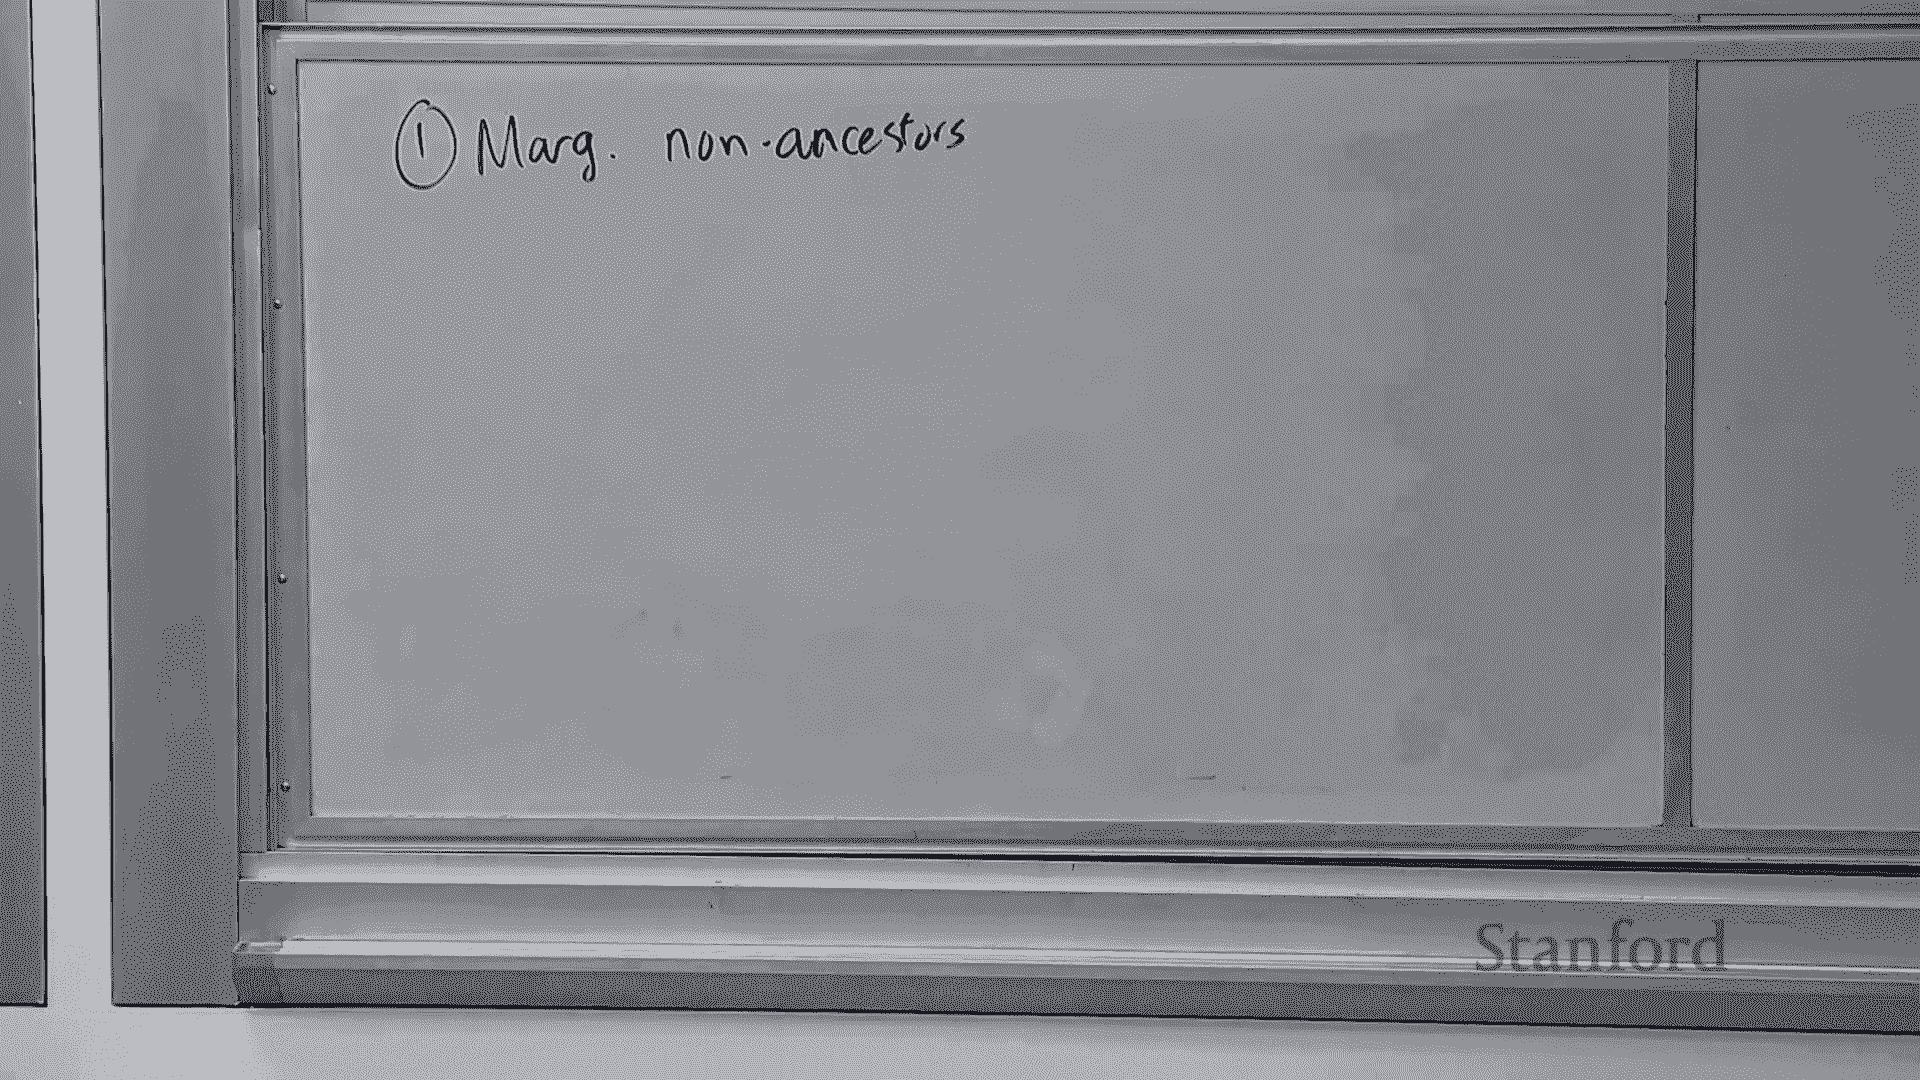 ① Marg. non-ancestors
Stanford